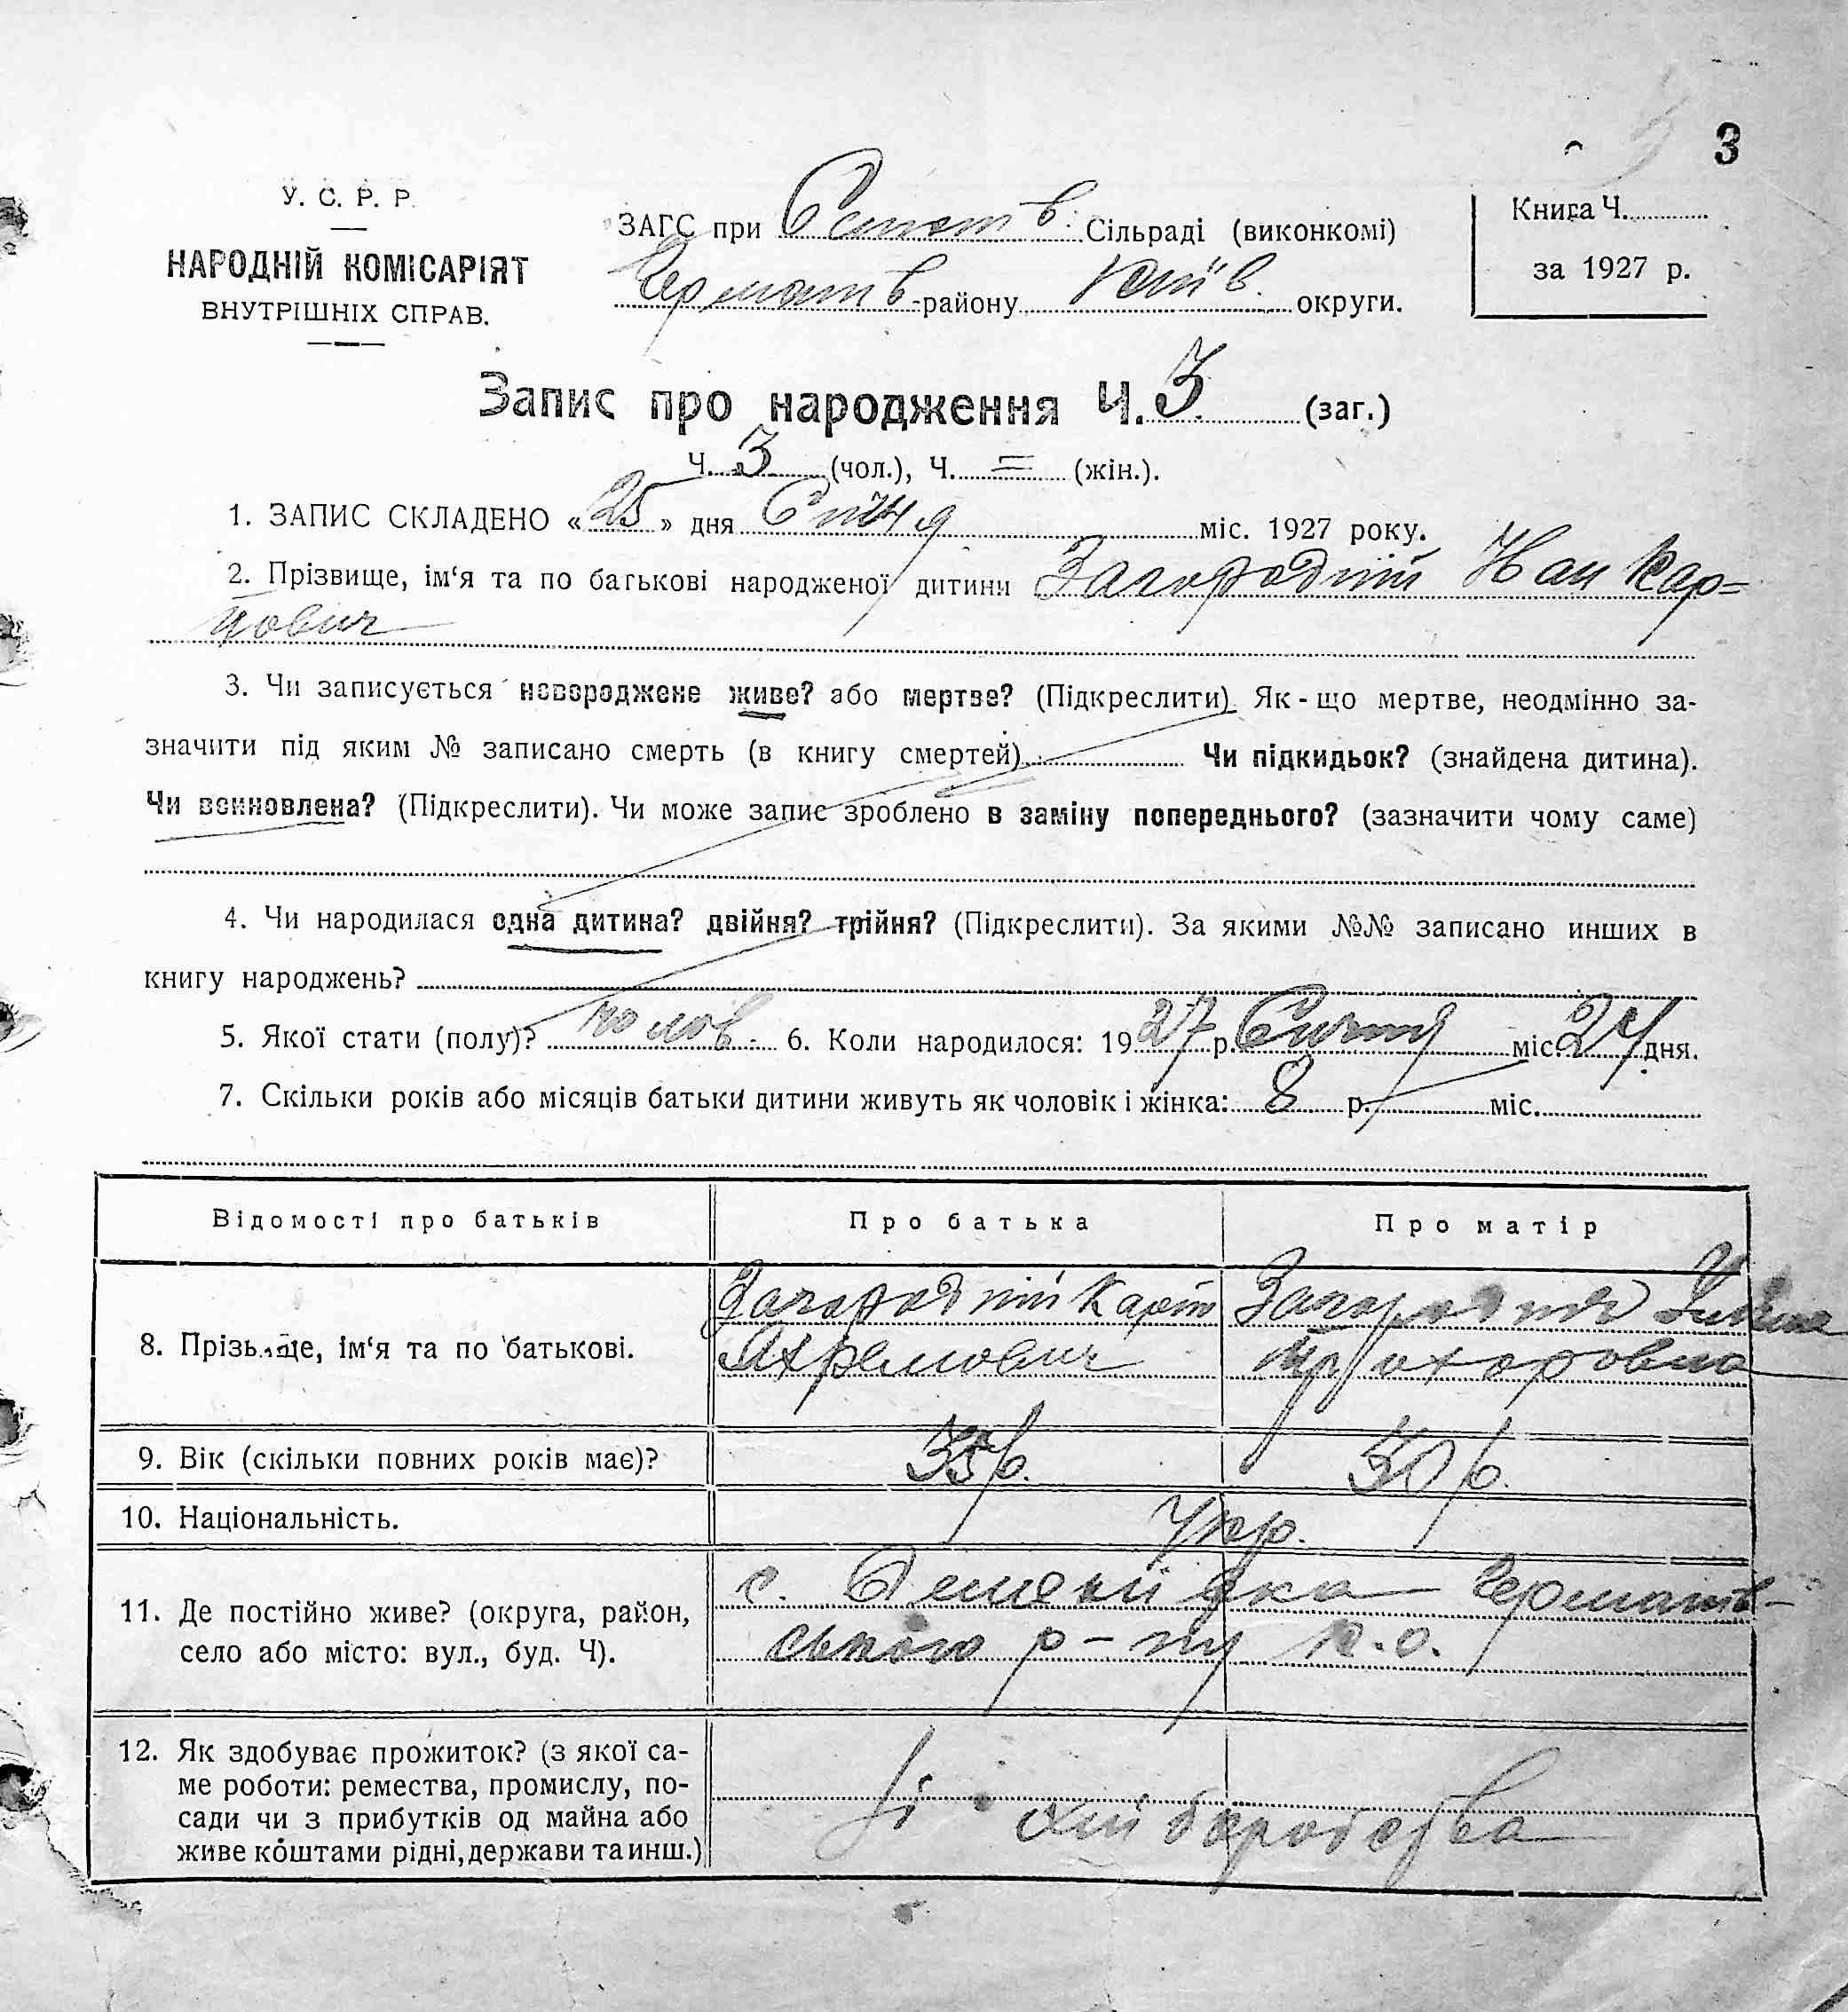 3
У. С. Р. Р.
НАРОДНІЙ КОМІСАРІЯТ
ВНУТРІШНІХ СПРАВ.
ЗАГС при Сільраді (виконкомі)
району Київ. округи.
Книга Ч.
за 1927 р.
Запис про народження Ч. 3 (заг.)
Ч. 3 (чол.), Ч. = (жін.).
1. ЗАПИС СКЛАДЕНО « 25 » дня Січня міс. 1927 року.
2. Прізвище, ім‘я та по батькові народженої дитини Загородній Іван Кар=
пович
3. Чи записується новороджене живе? або мертве? (Підкреслити). Як-що мертве, неодмінно за-
значити під яким № записано смерть (в книгу смертей) Чи підкидьок? (знайдена дитина).
Чи всиновлена? (Підкреслити). Чи може запис зроблено в заміну попереднього? (зазначити чому саме)
4. Чи народилася одна дитина? двійня? трійня? (Підкреслити). За якими №№ записано инших в
книгу народжень?
5. Якої стати (полу)? чолов. 6. Коли народилося: 1927 р. Січня міс. 24 дня.
7. Скільки років або місяців батьки дитини живуть як чоловік і жінка: 8 р. міс.
Відомості про батьків Про батька Про матір
8. Прізвище, ім‘я та по батькові. Загородній Карпо Загородня
Охремович Прохоровна
9. Вік (скільки повних років має)? 35 р. 30 р.
10. Національність. Укр.
11. Де постійно живе? (округа, район,
село або місто: вул., буд. Ч).
с.
ського р-ну К.о.
12. Як здобуває прожиток? (з якої са-
ме роботи: ремества, промислу, по-
сади чи з прибутків од майна або
живе коштами рідні, держави та инш.)
хліборобства